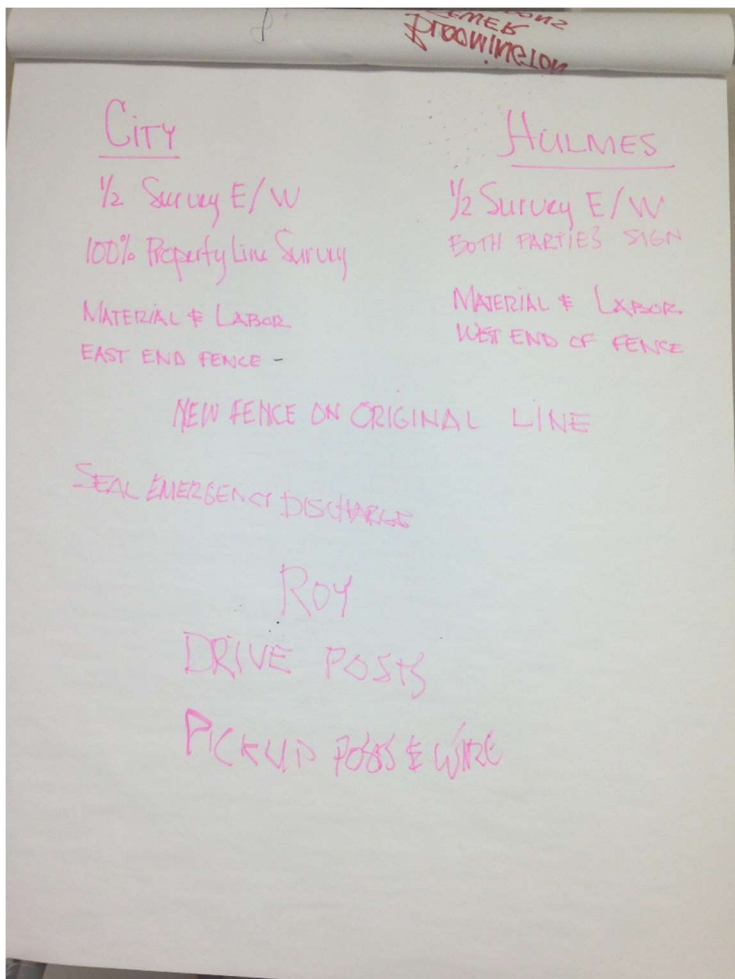 SEWER
BLOOMINGTON
CITY
HULMES
1/2 Survey E/W
100% Property Line Survey
MATERIAL & LABOR
EAST END FENCE -
1/2 Survey E/W
BOTH PARTIES SIGN
MATERIAL & LABOR
WEST END OF FENCE
NEW FENCE ON ORIGINAL LINE
SEAL EMERGENCY DISCHARGE
ROY
DRIVE POSTS
PICKUP POSTS & WIRE